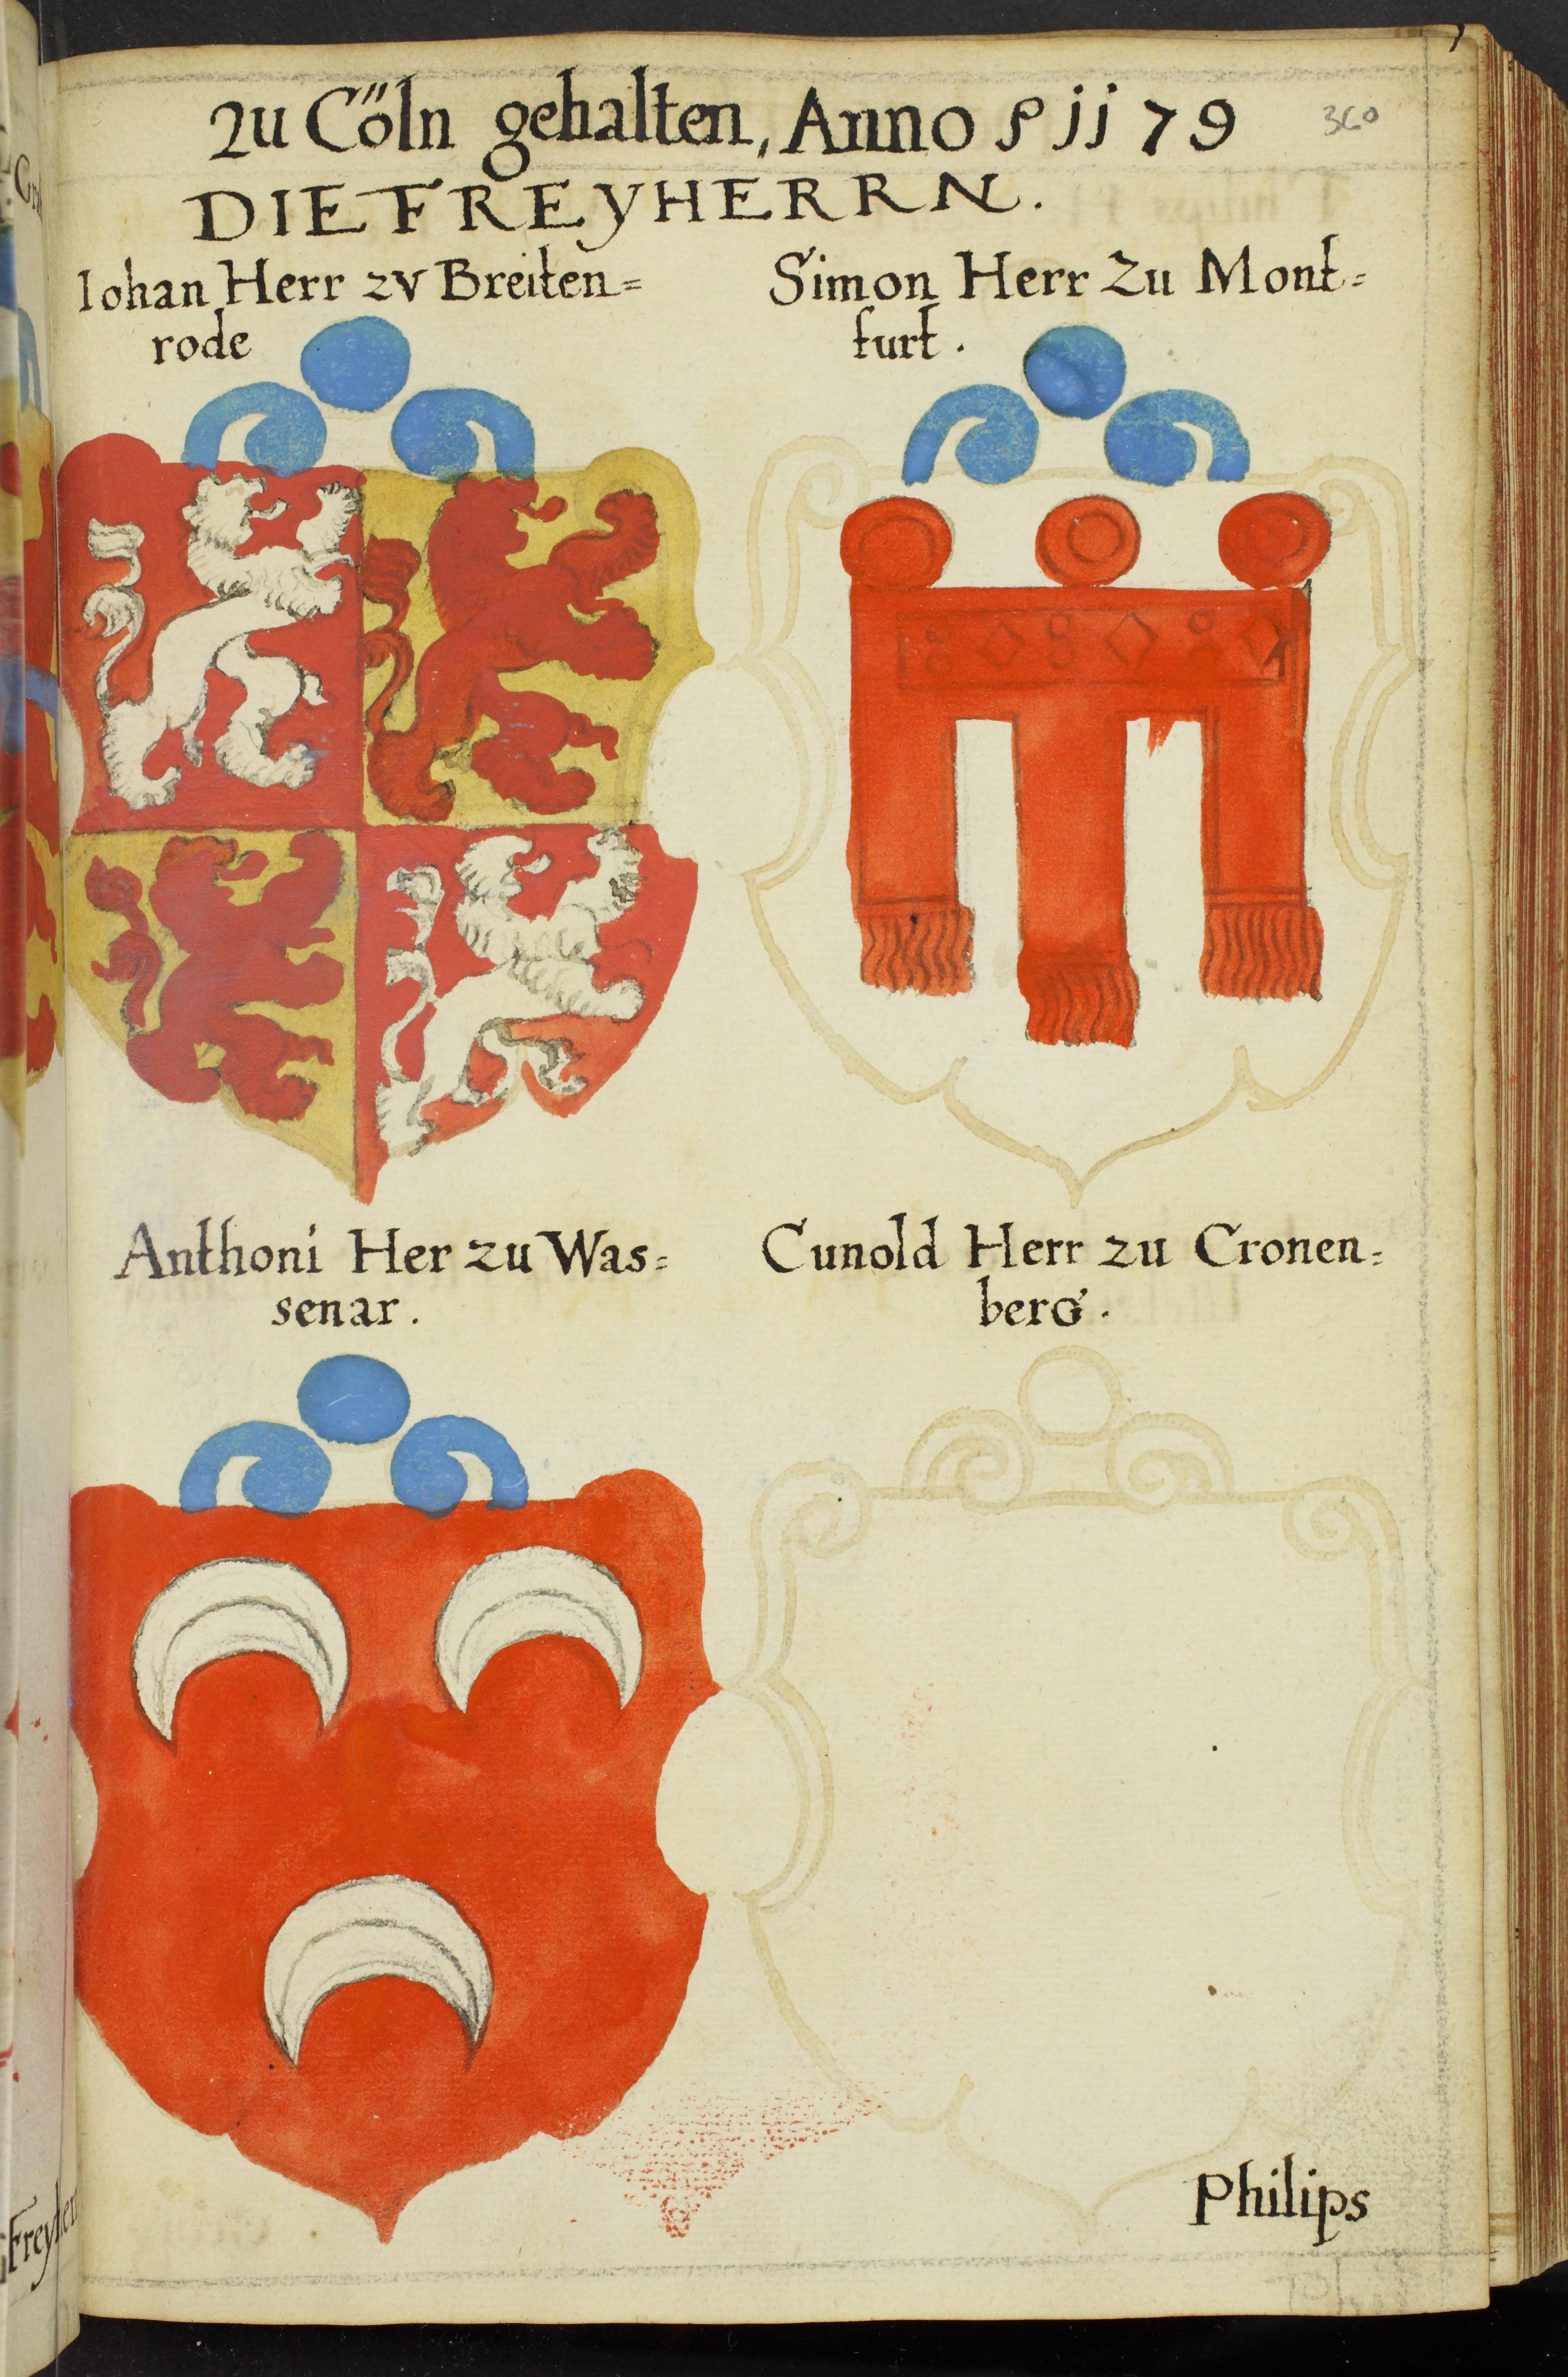 Zu Cöln gehalten, Anno 1179
360
DIE FREYHERRN.
Iohan Herr zv Breiten=
rode
Simon Herr Zu Mont=
furt.
Anthoni Her zu Was=
senar.
Cunold Herr zu Cronen=
berg.
Philips